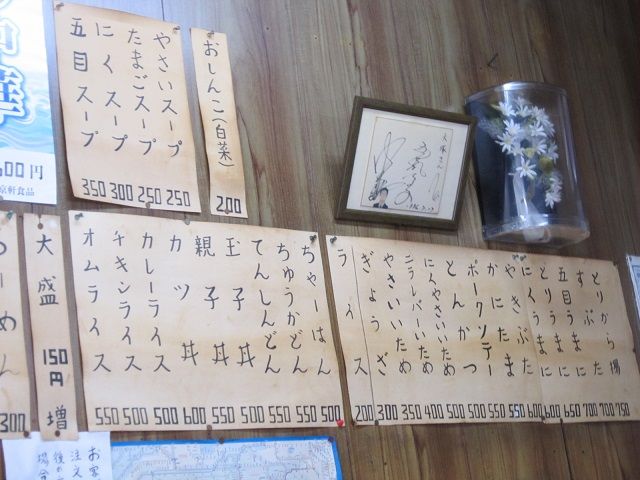 おしんこ(白菜) 200
やさいスープ 250
たまごスープ 250
にくスープ 300
五目スープ 350
華
600円
京軒食品
とりから揚 750
すぶた 700
五目うまに 700
とりうまに 650
にくうまに 600
やきぶた 600
かにたま 550
ポークソテー 550
とんかつ 500
にくやさいいため 500
ニラレバーいため 400
やさいいため 350
ぎょうざ 300
ライス 200
ちゃーはん 500
ちゅうかどん 550
てんしんどん 550
玉子丼 500
親子丼 550
カツ丼 600
カレーライス 500
チキンライス 550
オムライス 550
大盛 150円増
ーめん 300